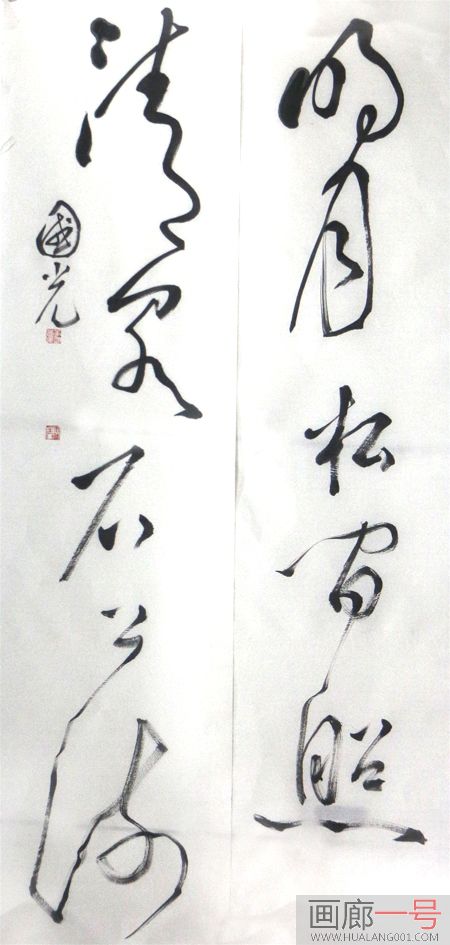 明月松间照
清泉石上流
國光
画廊一号
WWW.HUALANG001.COM